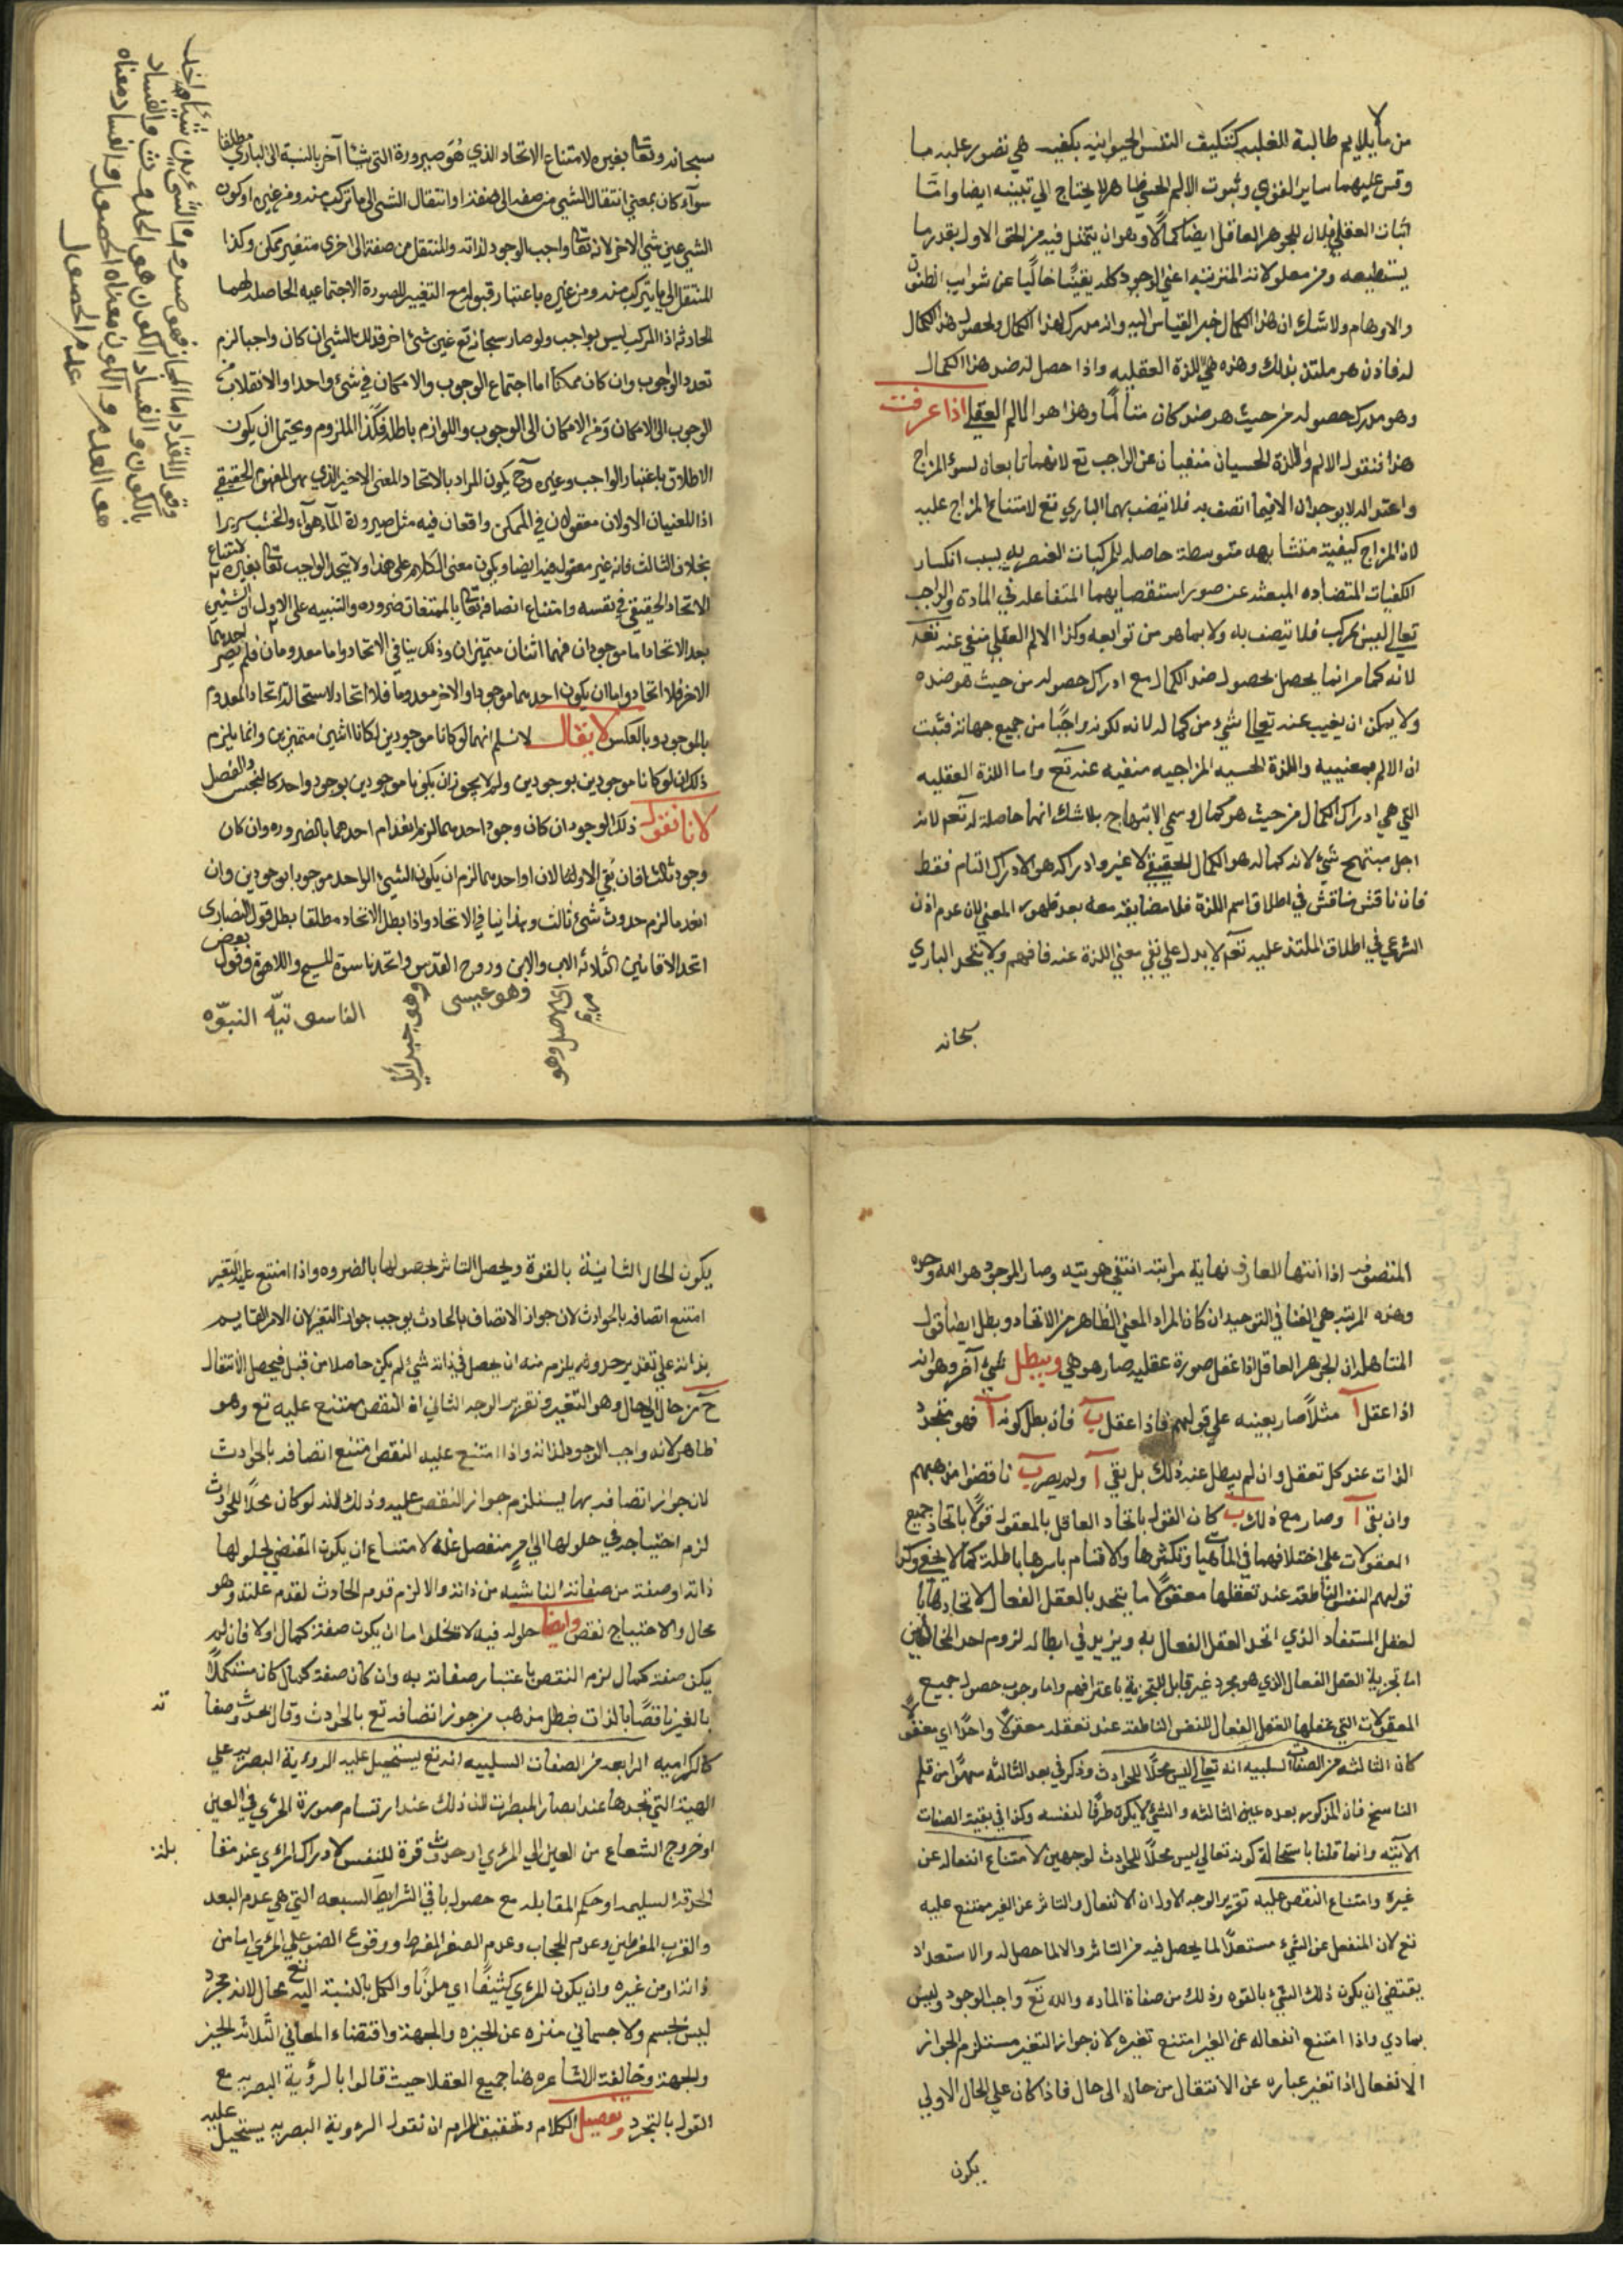 من ما يلايم طالبة الغلبة كتكليف النفس الحيوانية بكيفية هي تصور عليه ما
وقس عليهما ساير القوى وثبوت الالم الحسي ظاهر لا يحتاج الى تبينه ايضا واما
اثبات العقلي فيقال للجوهر العاقل ايضا كمالا وهو ان يتمثل فيه من الحق الاول بقدر ما
يستطيعه ومن معلولاته المترتبة اعني الوجود كله يقينًا خاليًا عن شوايب الظنون
والاوهام ولا شك ان هذا الكمال خير بالقياس اليه وانه مدرك لهذا الكمال ولحصول هذا الكمال
له فاذن هو ملتذ بذلك وهذه هي اللذة العقلية واذا حصل له ضد هذا الكمال
وهو مدرك حصوله من حيث هو ضد كان متألمًا وهذا هو الالم العقلي اذا عرفت
هذا فنقول الالم واللذة الحسيان منفيان عن الواجب تع لانهما تابعان لسوء المزاج
واعتداله لا يوجدان الا فيما اتصف به فلا يتصف بهما الباري تع لامتناع المزاج عليه
لان المزاج كيفية متشابهة متوسطة حاصلة للمركبات العنصرية بسبب انكسار
الكفيات المتضاده المنبعثة عن صور استقصايهما المتفاعلة في المادة والواجب
تعالى ليس بمركب فلا يتصف به ولا بما هو من توابعه وكذا الالم العقلي منفي عنه تع
لانه كما مر انما يحصل بحصول ضد الكمال مع ادراك حصوله من حيث هو ضده
ولا يمكن ان يغيب عنه تعالى شيء من كماله لانه لكونه واجبًا من جميع جهاته فثبت
ان الالم بمعنييه واللذة الحسيه المزاجيه منفيه عنه تع واما اللذة العقليه
التي هي ادراك الكمال من حيث هو كمال وسمي الابتهاج بلا شك انها حاصلة له تع لانه
اجل مبتهج شيء لانه كماله هو الكمال الحقيقي لا غير وادراكه هو الادراك التام فقط
فان ناقش مناقش في اطلاق اسم اللذة فلا مضايقة معه بعد ظهور المعنى لان عدم اذن
الشرعي في اطلاق الملتذ عليه تع لا يدل على نفي معنى اللذة عنه فافهم ولا يتحد الباري
سبحانه
سبحانه وتعالى بغيره لامتناع الاتحاد الذي هو صيرورة الشي شيئا آخر بالنسبة الى الباري مطلقا
سوآء كان بمعنى انتقال الشي من صفة الى صفة او انتقال الشي الى ما تركب منه ومن غيره او كون
الشي عين شي الاخر لانه تعالى واجب الوجود لذاته والمنتقل من صفة الى اخرى متغير ممكن وكذا
المنتقل الى ما يتركب منه ومن غيره باعتبار قبوله مع التغيير للصورة الاجتماعيه الحاصلة لهما
الحادثة اذ المركب ليس بواجب ولو صار سبحانه تع عين شئ اخر فذلك الشي ان كان واجبا لزم
تعدد الواجب وان كان ممكنا اما اجتماع الوجوب والامكان في شئ واحد او الانقلاب من
الوجوب الى الامكان ومن الامكان الى الوجوب واللوازم باطلة فكذا الملزوم ويحتمل ان يكون
الاطلاق باعتبار الواجب وغيره وح يكون المراد بالاتحاد المعنى الاخير الذي هو المفهوم الحقيقي
اذ المعنيان الاولان معقولان في الممكن واقعان فيه مثل صيرورة المآء هوآء والخشب سريرا
بخلاف الثالث فانه غير معقول فيه ايضا ويكون معنى الكلام على هذا ولا يتحد الواجب تعالى بغيره لامتناع
الاتحاد الحقيقي في نفسه وامتناع اتصافه تعالى بالممتنعات ضروره والتنبيه على الاول ان الشيئين
بعد الاتحاد اما موجودان فهما اثنان متميزان وذلك ينافي الاتحاد واما معدومان فلم يصر احدهما
الاخر فلا اتحاد واما ان يكون احدهما موجودا والاخر معدوما فلا اتحاد لاستحالة اتحاد المعدوم
بالموجود وبالعكس لا يقال لا نسلم انهما لو كانا موجودين لكانا اثنين متميزين وانما يلزم
ذلك ان لو كانا موجودين بوجودين ولم لا يجوز ان يكونا موجودين بوجود واحد كالجنس والفصل
لانا نقول ذلك الوجود ان كان وجود احدهما لزم انعدام احدهما بالضروره وان كان
وجود ثالثا فان بقي الاولان او احدهما لزم ان يكون الشيئ الواحد موجودا بوجودين وان
انعدما لزم حدوث شئ ثالث وهذا ينافي الاتحاد واذا بطل الاتحاد مطلقا بطل قول النصارى
اتحد الاقانيم الثلاثه الاب والابن وروح القدس واتحد ناسوة المسيح واللاهوة وقول بعض
وهو عيسى
وهو جبرائيل
مريم
الناسوتيّه النبوّه
هو العدم والكون معناه الحصول والفساد معناه
عدم الحصول
المتصوفه اذا انتها العارف نهاية مراتبه انتفى هويته وصار الموجود هو الله وحده
وهذه المرتبة هي الفنا في التوحيد ان كان المراد المعنى الظاهر من الاتحاد وبطل ايضا قول
المتاهل ان الجوهر العاقل اذا عقل صورة عقليه صار هو هي ويبطل شئ آخر وهو انه
اذا عقل آ مثلًا صار بعينه على قولهم فاذا عقل ب فان بطل كونه آ فهو متجدد
الذات عند كل تعقل وان لم يبطل عند ذلك بل بقي آ ولم يصر ب ناقضوا مذهبهم
وان بقي آ وصار مع ذلك ب كان القول باتحاد العاقل بالمعقول قولًا باتحاد جميع
المعقولات على اختلافهما في الماهيات وتكثرها والاقسام باسرها باطلة كما لا يخفى وكذا
قولهم النفس الناطقة عند تعقلها معقولًا ما يتحد بالعقل الفعال لاتحادها با
لعقل المستفاد الذي اتحد العقل الفعال به ويزيد في ابطاله لزوم احد المحالين
اما تجزية العقل الفعال الذي هو مجرد غير قابل للتجزية باعترافهم واما وجوب حصول جميع
المعقولات التي عقلها العقل الفعال للنفس الناطقة عند تعقله معقولًا واحدًا اي معقولًا
كان الثالثه من الصفات السلبيه انه تعالى ليس محلًا للحوادث وذكر في بعد الثالثه سهوًا من قلم
الناسخ فان المذكور بعده عين الثالثه والشئ لا يكون ظرفًا لنفسه وكذا في بقية الصفات
الاتيه وانما قلنا باستحالة كونه تعالى ليس محلًا للحوادث لوجهين لامتناع انفعاله عن
غيره وامتناع النقص عليه تقرير الوجه الاول ان الانفعال والتاثر عن الغير ممتنع عليه
تع لان المنفعل عن الشيء مستعدًا لما يحصل فيه من التاثر والا لما حصل له والاستعداد
يقتضي ان يكون ذلك الشيء بالقوه وذلك من صفاة الماده والله تع واجب الوجود وليس
بمادي واذا امتنع انفعاله عن الغير امتنع تغيره لان جواز التغير مستلزم لجواز
الانفعال اذ التغير عباره عن الانتقال من حال الى حال فاذا كان على الحال الاولى
يكون
يكون الحال الثانية بالقوة ويحصل التاثر بحصولها بالضروره واذا امتنع عليه التغير
امتنع اتصافه بالحوادث لان جواز الاتصاف بالحادث يوجب جواز التغير لان الامر القايم
بذاته على تقدير حدوثه يلزم منه ان يحصل في ذاته شئ لم يكن حاصلا من قبل فيحصل الانتقال
ح من حال الى حال وهو التغير وتقرير الوجه الثاني ان النقص ممتنع عليه تع وهو
ظاهر لانه واجب الوجود لذاته واذا امتنع عليه النقص امتنع اتصافه بالحوادث
لان جواز اتصافه بها يستلزم جواز النقص عليه وذلك لانه لو كان محلًا للحوادث
لزم احتياجه في حلولها الى امر منفصل عنه لامتناع ان يكون المقتضي لحلولها
ذاته او صفة من صفاته الناشيه من ذاته والا لزم قدم الحادث لقدم علته وهو
محال والاحتياج نقص وايضا حلوله فيه لا يخلوا اما ان يكون صفة كمال اولا فان لم
يكن صفة كمال لزم النقص باعتبار صفاته به وان كان صفة كمال كان مستكملًا
بالغير ناقصًا بالذات فبطل مذهب من جوز اتصافه تع بالحوادث وقال بحدوث صفا
ته
كالكراميه الرابعه من الصفات السلبيه انه تع يستحيل عليه الروءية البصريه على
الهيئة التي نجدها عند ابصار المبصرات لان ذلك عند ارتسام صورة المرئي في العين
او خروج الشعاع من العين الى المرئي او حدوث قوة للنفس لادراك المرئي عند مقا
بلة
الحدقة السليمه او حكم المقابله مع حصول باقي الشرايط السبعه التي هي عدم البعد
والقرب المفرطين وعدم الحجاب وعدم الصغر المفرط ووقوع الضوء على المرئي اما من
ذاته او من غيره وان يكون المرئي كثيفًا اي ملونًا والكل بالنسبة اليه تع محال لانه مجرد
ليس بجسم ولا جسماني منزه عن الحيزه والجهة واقتضاء المعاني الثلاثة الحيز
والجهة وخالفت الاشاعره هنا جميع العقلا حيث قالوا بالرؤية البصريه مع
القول بالتجرد وتفصيل الكلام وتحقيق المرام ان نقول الرءوية البصريه يستحيل عليه